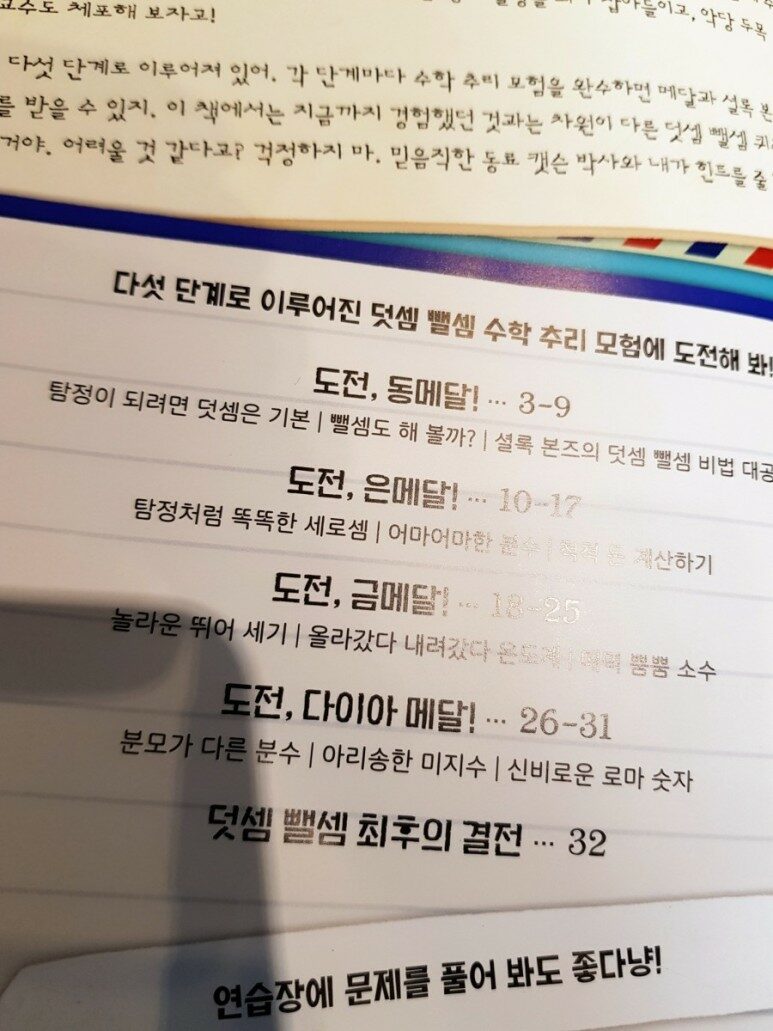 교수도 체포해 보자고! 잡아들이고, 악당 두목
다섯 단계로 이루어져 있어. 각 단계마다 수학 추리 모험을 완수하면 메달과 셜록 본
를 받을 수 있지. 이 책에서는 지금까지 경험했던 것과는 차원이 다른 덧셈 뺄셈 퀴
거야. 어려울 것 같다고? 걱정하지 마. 믿음직한 동료 캣슨 박사와 내가 힌트를 줄
다섯 단계로 이루어진 덧셈 뺄셈 수학 추리 모험에 도전해 봐!
도전, 동메달! ··· 3-9
탐정이 되려면 덧셈은 기본 | 뺄셈도 해 볼까? | 셜록 본즈의 덧셈 뺄셈 비법 대공
도전, 은메달! ··· 10-17
탐정처럼 똑똑한 세로셈 | 어마어마한 분수 | 척척 돈 계산하기
도전, 금메달! ··· 18-25
놀라운 뛰어 세기 | 올라갔다 내려갔다 온도계 | 뿜뿜 소수
도전, 다이아 메달! ··· 26-31
분모가 다른 분수 | 아리송한 미지수 | 신비로운 로마 숫자
덧셈 뺄셈 최후의 결전 ··· 32
연습장에 문제를 풀어 봐도 좋다냥!